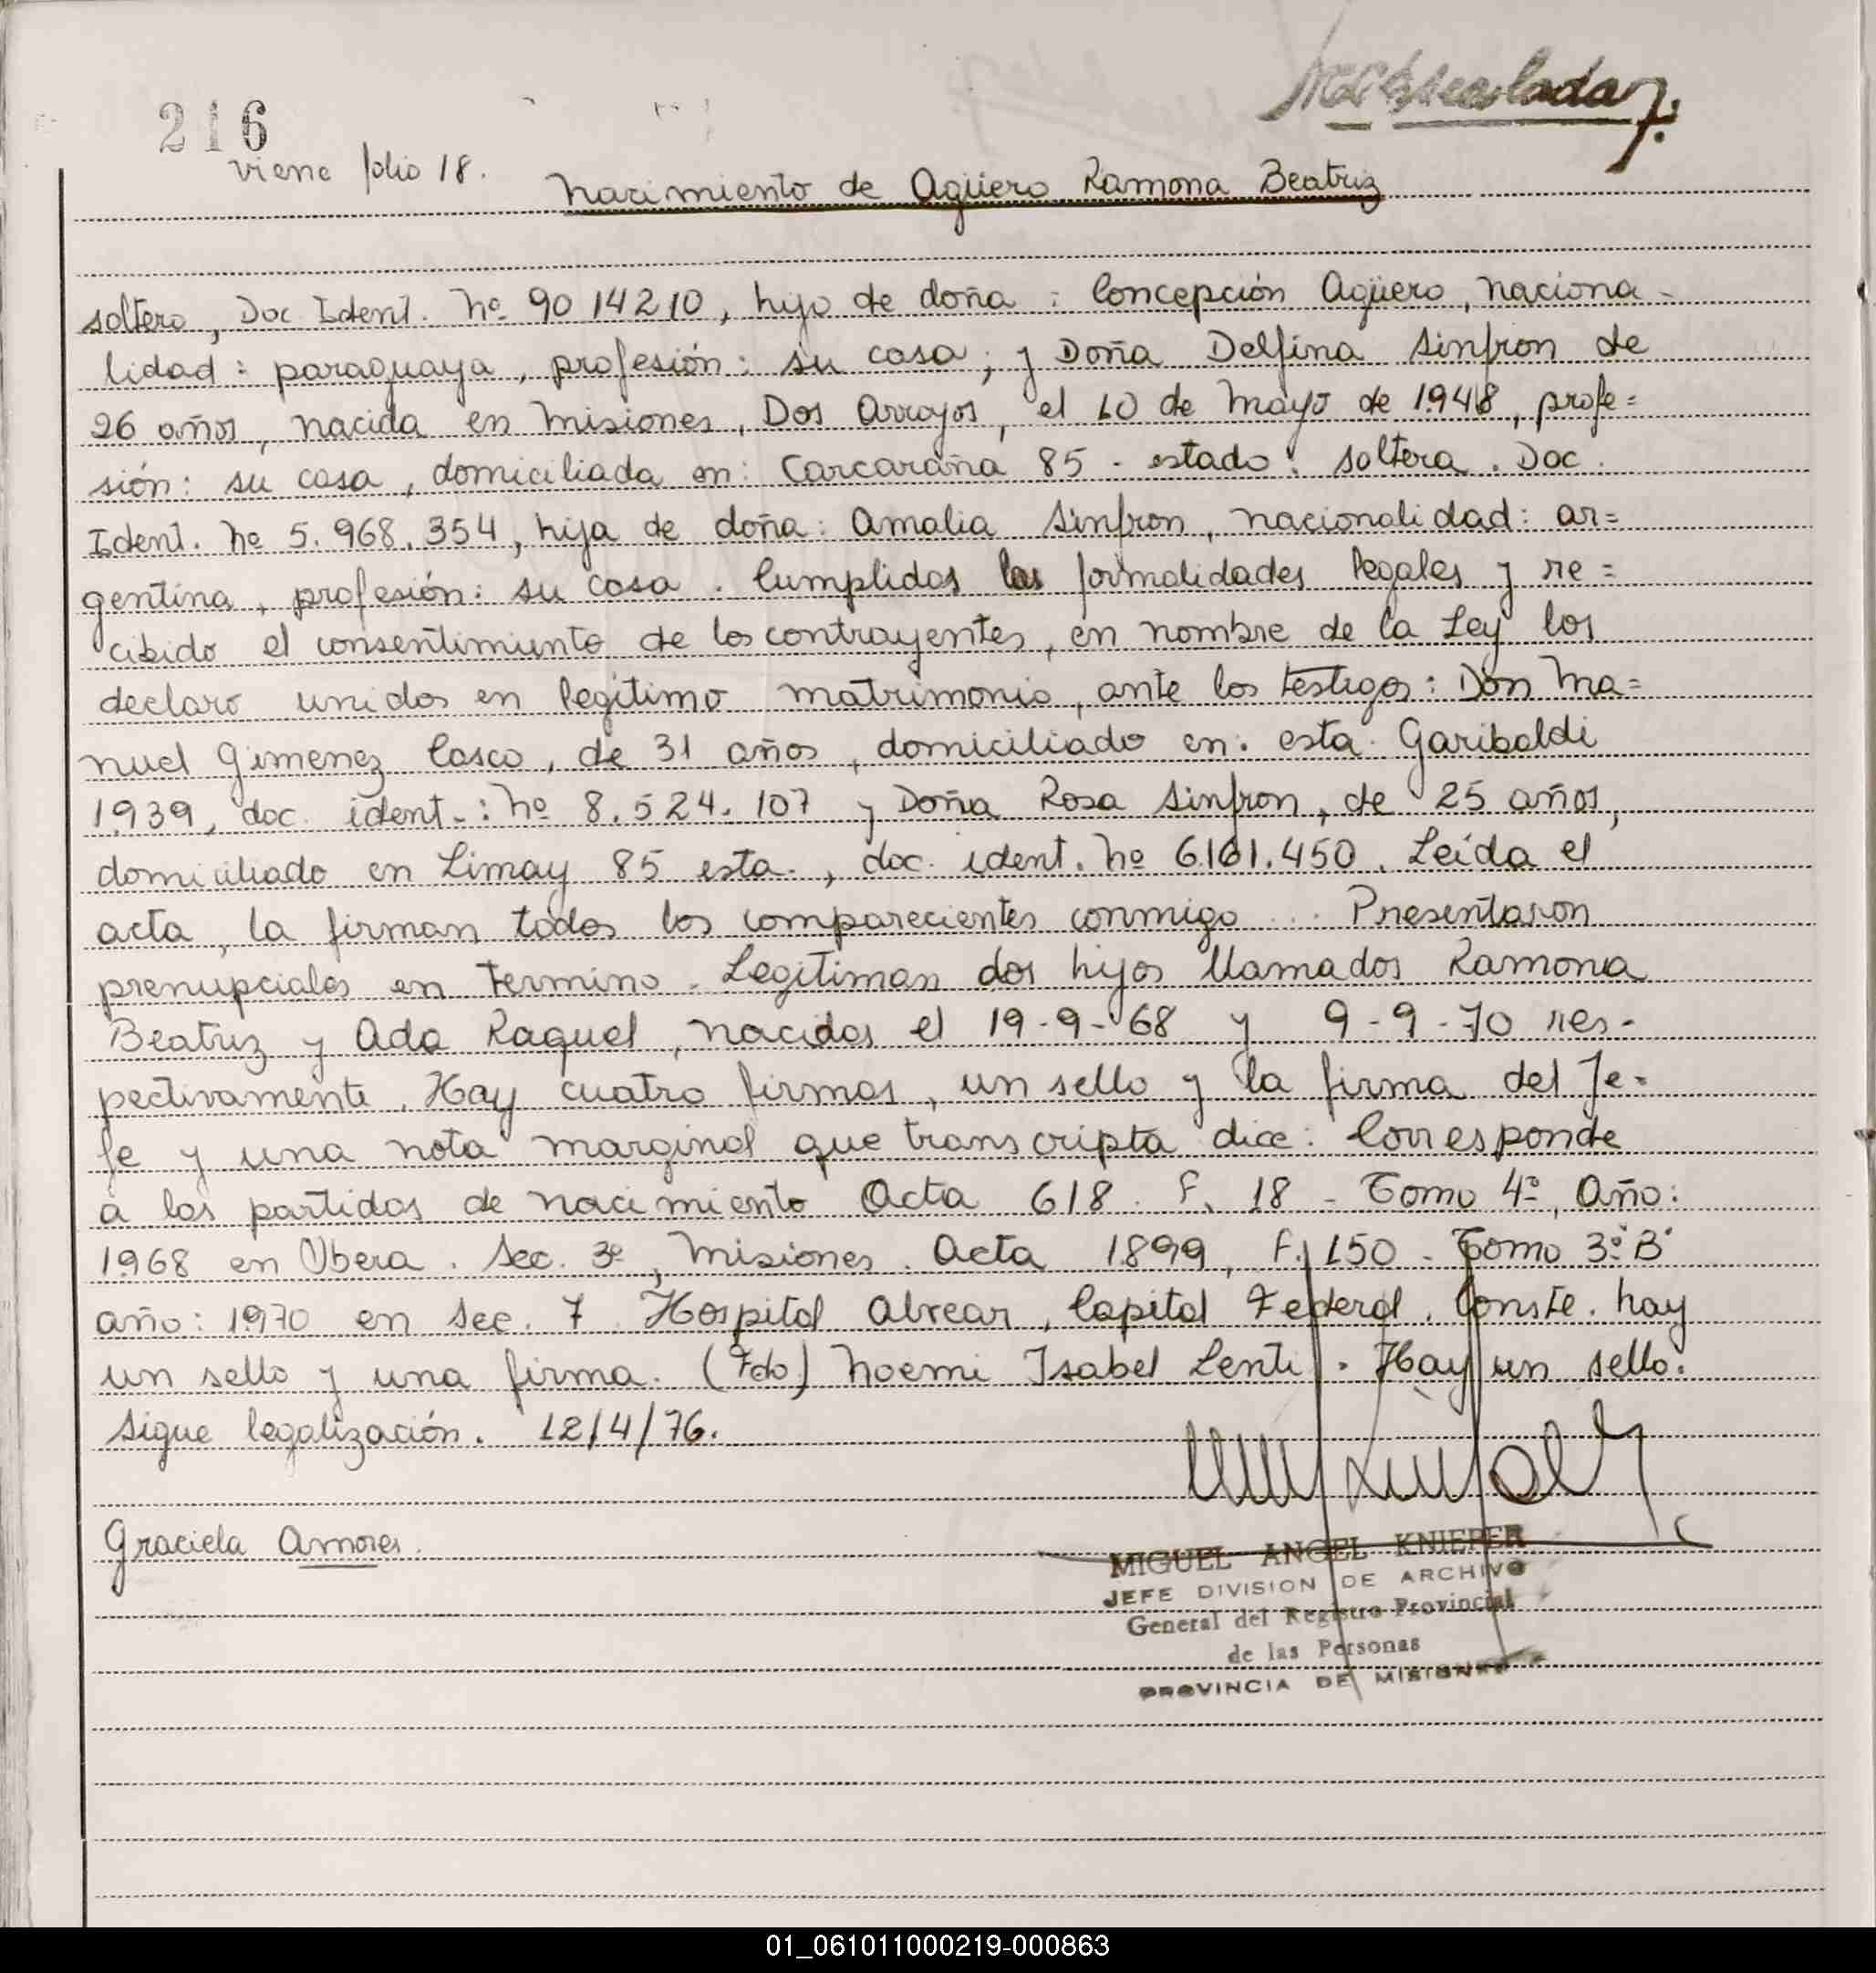 216
viene folio 18.
Nacimiento de Agüero Ramona Beatriz
soltero, Doc Ident. Nº 90 14210, hijo de doña : Concepción Agüero, naciona-
lidad : paraguaya, profesión : su casa ; y Doña Delfina Sinfron de
26 años, nacida en Misiones, Dos Arroyos, el 10 de Mayo de 1948, profe=
sión: su casa, domiciliada en: Carcaraña 85 - estado : soltera. Doc.
Ident. Nº 5.968.354, hija de doña: Amalia Sinfron, nacionalidad: ar=
gentina, profesión: su casa. Cumplidas las formalidades legales y re=
cibido el consentimiento de los contrayentes, en nombre de la Ley los
declaro unidos en legítimo matrimonio, ante los testigos: Don Ma=
nuel Gimenez Casco, de 31 años, domiciliado en: esta. Garibaldi
1939, doc. ident.: Nº 8.524.107 y Doña Rosa Sinfron, de 25 años,
domiciliado en Limay 85 esta., doc. ident. Nº 6.161.450. Leída el
acta, la firman todos los comparecientes conmigo... Presentaron
prenupciales en termino. Legitiman dos hijos llamados Ramona
Beatriz y Ada Raquel, nacidas el 19-9-68 y 9-9-70 res-
pectivamente. Hay cuatro firmas, un sello y la firma del Je-
fe y una nota marginal que transcripta dice: Corresponde
a las partidas de nacimiento Acta 618. F. 18 - Tomo 4º, Año:
1968 en Obera. Sec. 3ª, Misiones. Acta 1899, F. 150 - Tomo 3º B'
año: 1970 en Sec. 7 Hospital Alvear, Capital Federal. Conste. hay
un sello y una firma. (Fdo) Noemi Isabel Lenti. Hay un sello.
Sigue legalización. 12/4/76.
Graciela Amores.
MIGUEL ANGEL KNIEPER
JEFE DIVISION DE ARCHIVO
General del Registro Provincial
de las Personas
PROVINCIA DE MISIONES
01_061011000219-000863